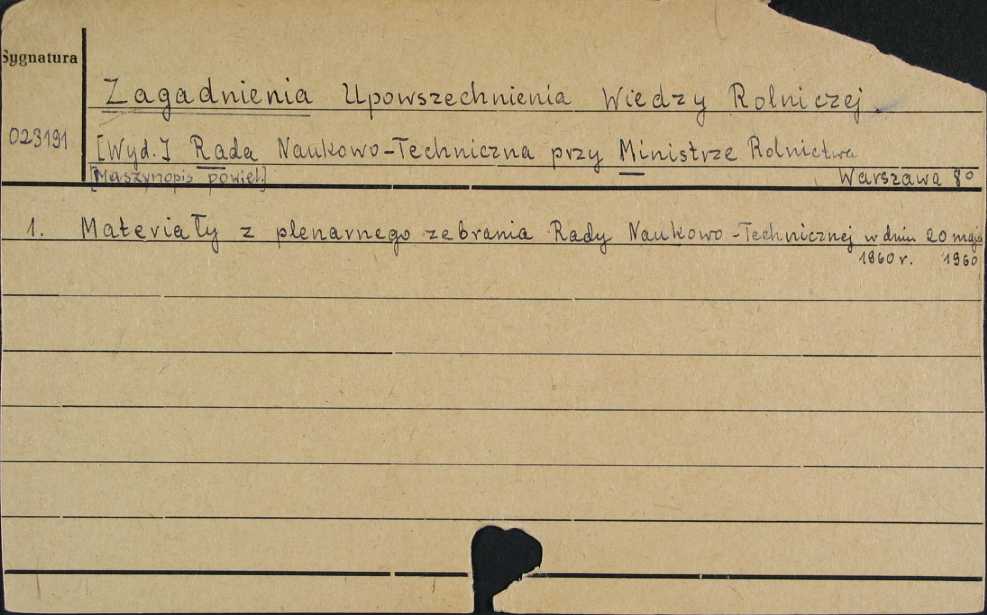 Sygnatura
Zagadnienia Upowszechnienia Wiedzy Rolniczej.
023191
[Wyd.] Rada Naukowo-Techniczna przy Ministrze Rolnictwa
[Maszynopis powiel.] Warszawa 8°
1. Materiały z plenarnego zebrania Rady Naukowo-Technicznej w dniu 20 maja
1960 r. 1960